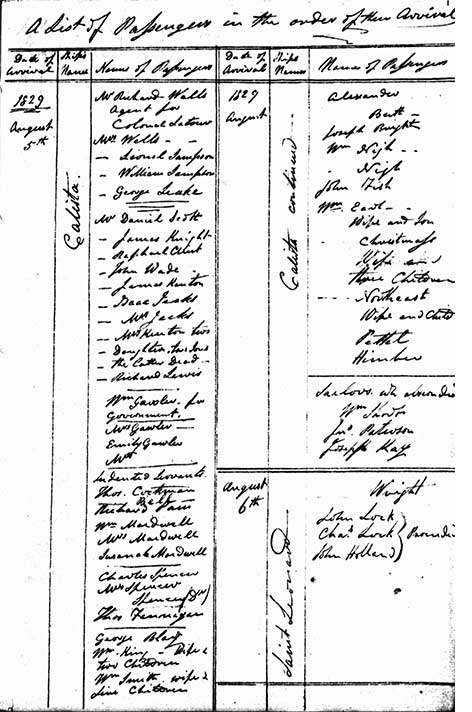 A List of Passengers in the order of their Arrival
Date of Arrival
Ships Name
Names of Passengers
1829
August
5th
Calista
Mr Richard Wells
Agent for
Colonel Latour
Mrs Wells - -
- Lionel Sampson
- William Sampson
- George Leake
Mr Daniel Scott
- James Knight
- Raphael Clint
- John Wade -
- James Kenton
- Isaac Jecks
- Mrs Jecks
- Mrs Kenton two
- Daughters, two Sons
the latter Dead -
- Richard Lewis
Wm Gawler for
Government.
Mrs Gawler -
Emily Gawler
Indented Servants.
Thos. Cockman
Richard
Wm Mardwell
Mrs Mardwell
Susanah Mardwell
Charles Spencer
Mrs Spencer
Spencer
Thos Finnigan
George Blay
Wm King - Wife &
two Children
Wm Smith, wife &
five Children
Date of Arrival
Ships Names
Names of Passengers
1829
August
Calista continued
Alexander
Butt -
Joseph Bright
Wm Nigh - -
- Nigh
John Fish
Wm East -
Wife and Son
- Christmass
Wife and
three Children
- - Northeast
Wife and Child
Pettet
Himber
Sailors who
Wm
Jno. Paterson
Joseph Kay
August
6th
Saint Leonard
Wright
John Lock
Chas Lock
John Holland